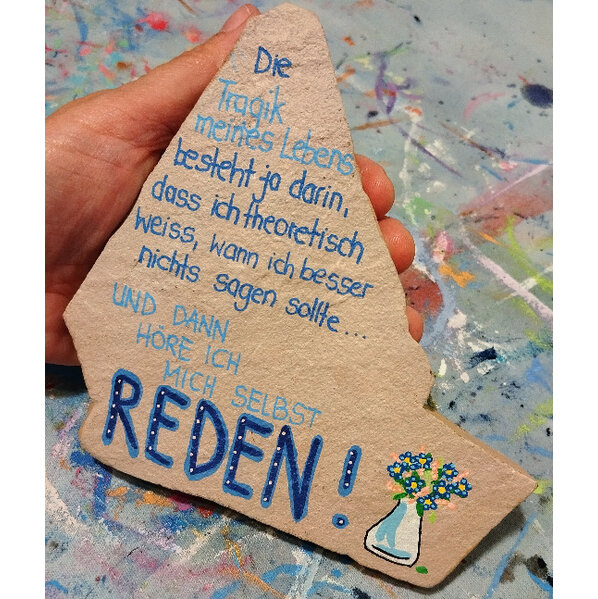 Die
Tragik
meines Lebens
besteht ja darin,
dass ich theoretisch
weiss, wann ich besser
nichts sagen sollte...
UND DANN
HÖRE ICH
MICH SELBST
REDEN!